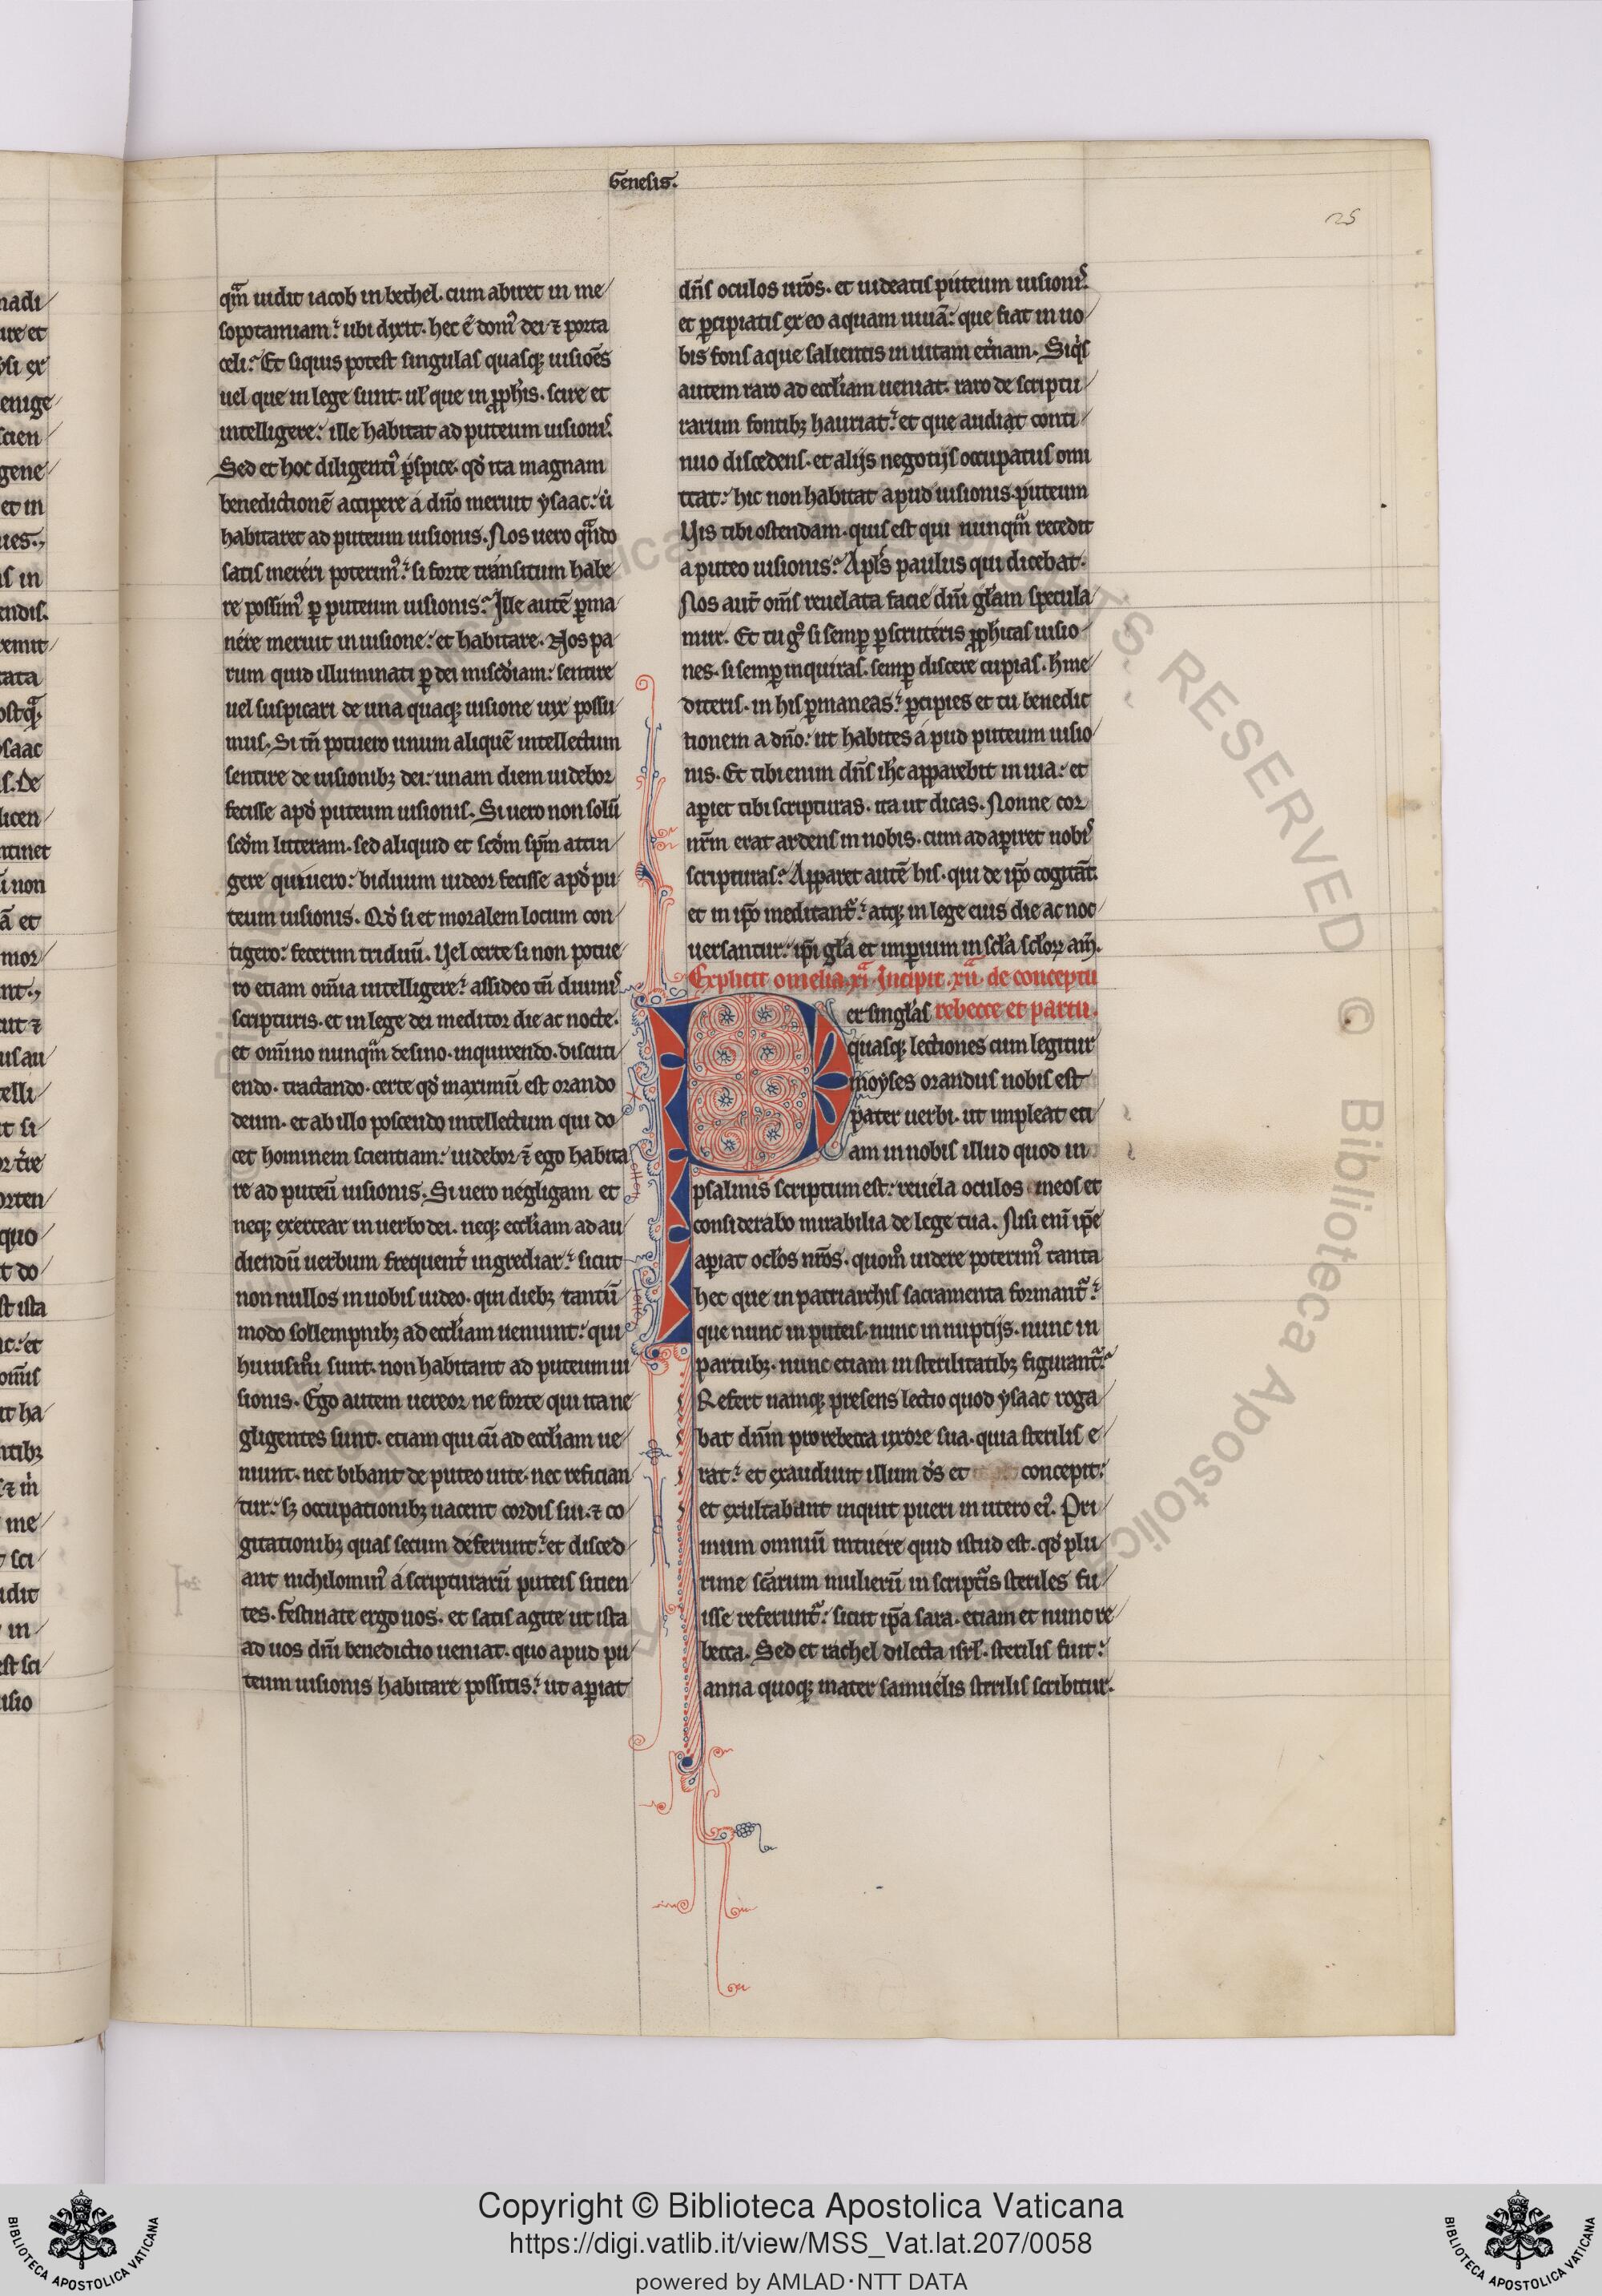 Genesis.
25
qm̄ uidit iacob in bethel. cum abiret in me
sopotamiam: ubi dixit. hec ē domꝰ dei ⁊ porta
celi: Et siquis potest singulas quasqꝫ uisiōes
uel que in lege sunt. ul̓ que in ꝓph̓is. scire et
intelligere: ille habitat ad puteum uisionis̓.
Sed et hoc diligentiꝰ ꝑspice. qd̓ ita magnam
benedictionē accipere a dño meruit ysaac: ut̓
habitaret ad puteum uisionis. Nos uero qn̄do
satis mereri poterimꝰ: si forte transitum habe
re possimꝰ ꝑ puteum uisionis: Ille autē ꝑma
nere meruit in uisione: et habitare. Nos pa
rum quid illuminati ꝑ dei mis̓cdiam: sentire
uel suspicari de una quaqꝫ uisione uix possu
mus. Si tn̄ potuero unum aliquē intellectum
sentire de uisionibꝫ dei: unam diem uidebor
fecisse apd̓ puteum uisionis. Si uero non solū
scd̓m litteram. sed aliquid et scd̓m sp̄m attin
gere quiuero: biduum uideor fecisse apd̓ pu
teum uisionis. Qd̓ si et moralem locum con
tigero: fecerim triduū. Uel certe si non potue
ro etiam om̄ia intelligere: assideo tn̄ diuinis̓
scripturis. et in lege dei meditor die ac nocte.
et om̄ino nunqm̄ desino. inquirendo. discuti
endo. tractando. certe qd̓ maximū est orando
deum. et ab illo poscendo intellectum qui do
cet hominem scientiam: uidebor ⁊ ego habita
re ad puteū uisionis. Si uero negligam et
neqꝫ exercear in uerbo dei. neqꝫ eccl̓iam ad au
diendū uerbum frequent̓ ingrediar: sicut
non nullos in uobis uideo. qui diebꝫ tantū
modo sollempnibꝫ ad eccl̓iam ueniunt: qui
huiusm̓i sunt. non habitant ad puteum ui
sionis. Ego autem uereor ne forte qui ita ne
gligentes sunt. etiam qui cū ad eccl̓iam ue
niunt. nec bibant de puteo uite. nec refician
tur: sꝫ occupationibꝫ uacent cordis sui. ⁊ co
gitationibꝫ quas secum deferunt: et disced
ant nichilominꝰ a scripturarū puteis sitien
tes. festinate ergo uos. et satis agite ut ista
ad uos dn̄i benedictio ueniat. quo apud pu
teum uisionis habitare possitis: ut aꝑiat
dn̄s oculos ur̄os. et uideatis puteum uisionis̓.
et ꝑcipiatis ex eo aquam uiuā: que fiat in uo
bis fons aque salientis in uitam et̓nam. Siqͥs
autem raro ad eccl̓iam ueniat. raro de scriptu
rarum fontibꝫ hauriat: et que audiat conti
nuo discedens. et alijs negotijs occupatus omi
ttat: hic non habitat apud uisionis puteum
Uis tibi ostendam. quis est qui nunqm̄ recedit
a puteo uisionis: Apl̓s paulus qui dicebat.
Nos aut̓ om̄s reuelata facie dn̄i gl̓am specula
mur. Et tu gͦ si semꝑ ꝑscruteris ꝓph̓itas uisio
nes. si semꝑ inquiras. semꝑ discere cupias. h̓ me
diteris. in his ꝑmaneas: ꝑcipies et tu benedic
tionem a dño: ut habites apud puteum uisio
nis. Et tibi enim dn̄s ih̓c apparebit in uia: et
aꝑiet tibi scripturas. ita ut dicas. Nonne cor
nr̄m erat ardens in nobis. cum adaꝑiret nobis̓
scripturas: Apparet autē his. qui de ip̄o cogitāt.
et in ip̄o meditant̓: atqꝫ in lege eius die ac noc
uersantur: ip̄i gl̓a et imꝑium in scl̓a scl̓oꝝ am̄.
Explicit omelia. xi.ͣ Incipit. xii.ͣ de conceptu
rebecce et partu.
Per singl̓as
quasqꝫ lectiones cum legitur
moyses orandus nobis est
pater uerbi. ut impleat eti
am in nobis illud quod in
psalmis scriptum est: reuela oculos meos et
considerabo mirabilia de lege tua. Nisi eni̅ ip̄e
aꝑiat oclōs nr̄os. quom̊ uidere poterimꝰ tanta
hec que in patriarchis sacramenta formant̓:
que nunc in puteis. nunc in nuptijs. nunc in
partubꝫ. nunc etiam in sterilitatibꝫ figurant̓:
Refert namqꝫ presens lectio quod ysaac roga
bat dn̄m pro rebecca uxore sua. quia sterilis e
rat: et exaudiuit illum ds̓ et concepit:
et exultabant inquit pueri in utero eiꝰ. Pri
mum omniū intuere quid istud est. qd̓ plu
rime sc̄arum mulierū in scriptis̓ steriles fu
isse referunt̓: sicut ip̄a sara. etiam et nunc re
becca. Sed et rachel dilecta isrl̓. sterilis fuit:
anna quoqꝫ mater samuelis sterilis scribitur.
Copyright © Biblioteca Apostolica Vaticana
https://digi.vatlib.it/view/MSS_Vat.lat.207/0058
powered by AMLAD·NTT DATA
BIBLIOTECA APOSTOLICA VATICANA
BIBLIOTECA APOSTOLICA VATICANA